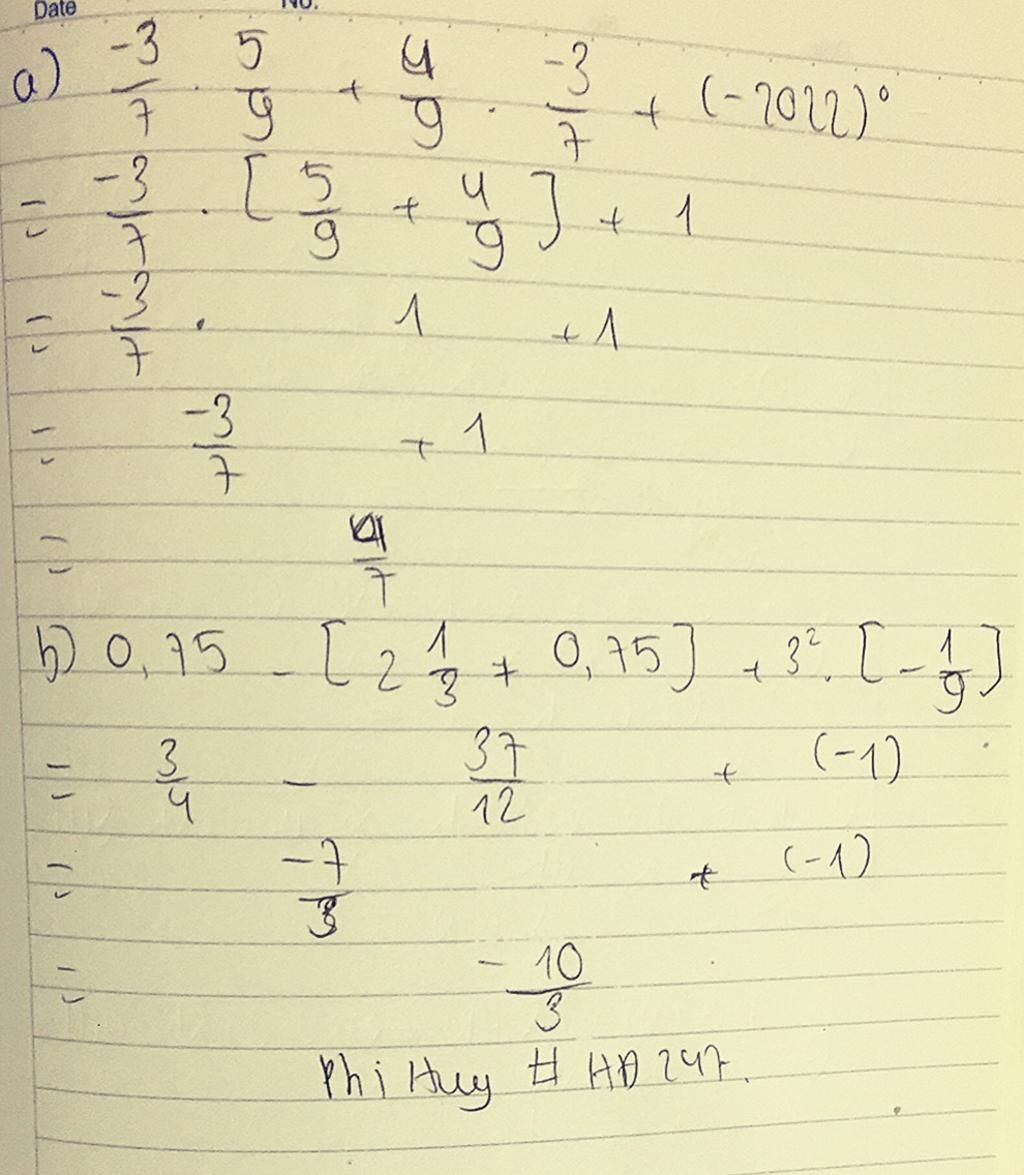 Date No.
a) -3/7 . 5/9 + 4/9 . -3/7 + (-2022)⁰
= -3/7 . [5/9 + 4/9] + 1
= -3/7 . 1 + 1
= -3/7 + 1
= 4/7
b) 0,75 - [2 1/3 + 0,75] + 3². [-1/9]
= 3/4 - 37/12 + (-1)
= -7/3 + (-1)
= -10/3
Phi Huy # HĐ 247.